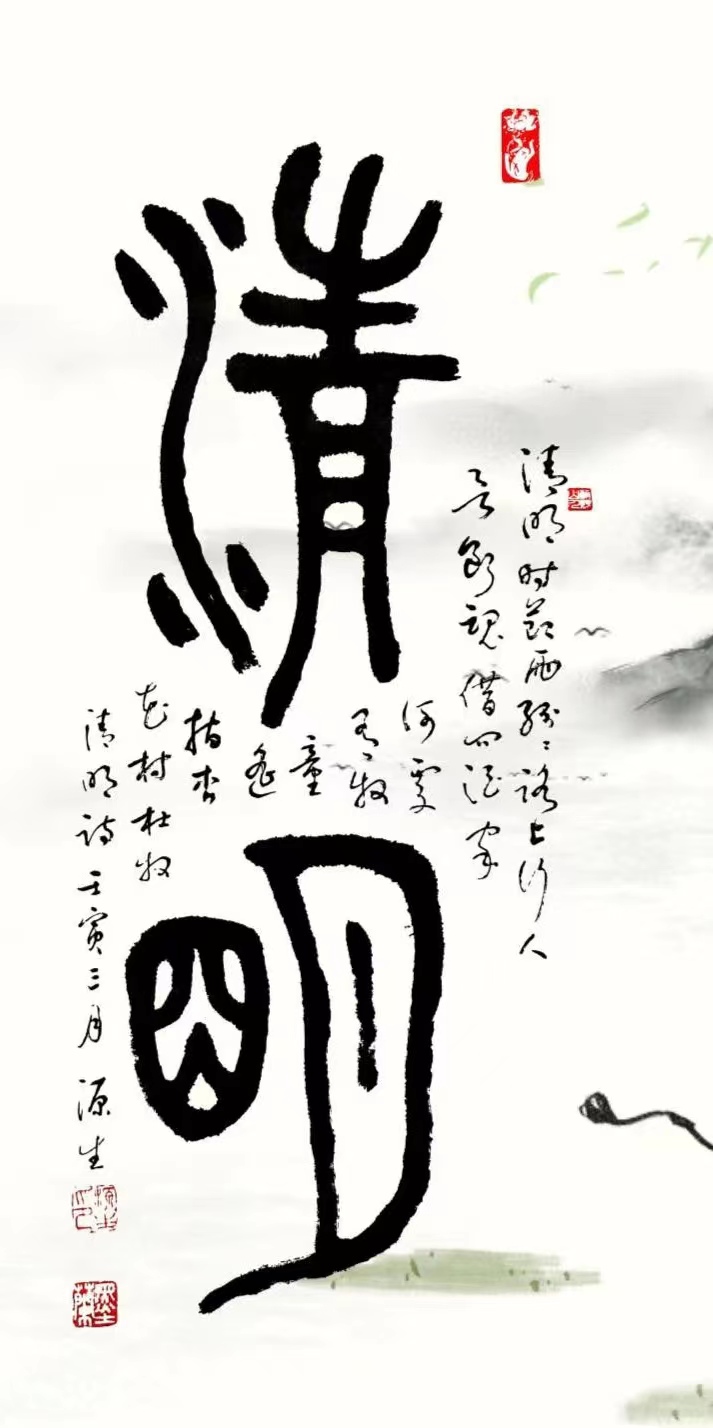 清明
清明时节雨纷纷路上行人
欲断魂借问酒家
何处
有牧
童
遥
指杏
花村杜牧
清明诗壬寅三月源生